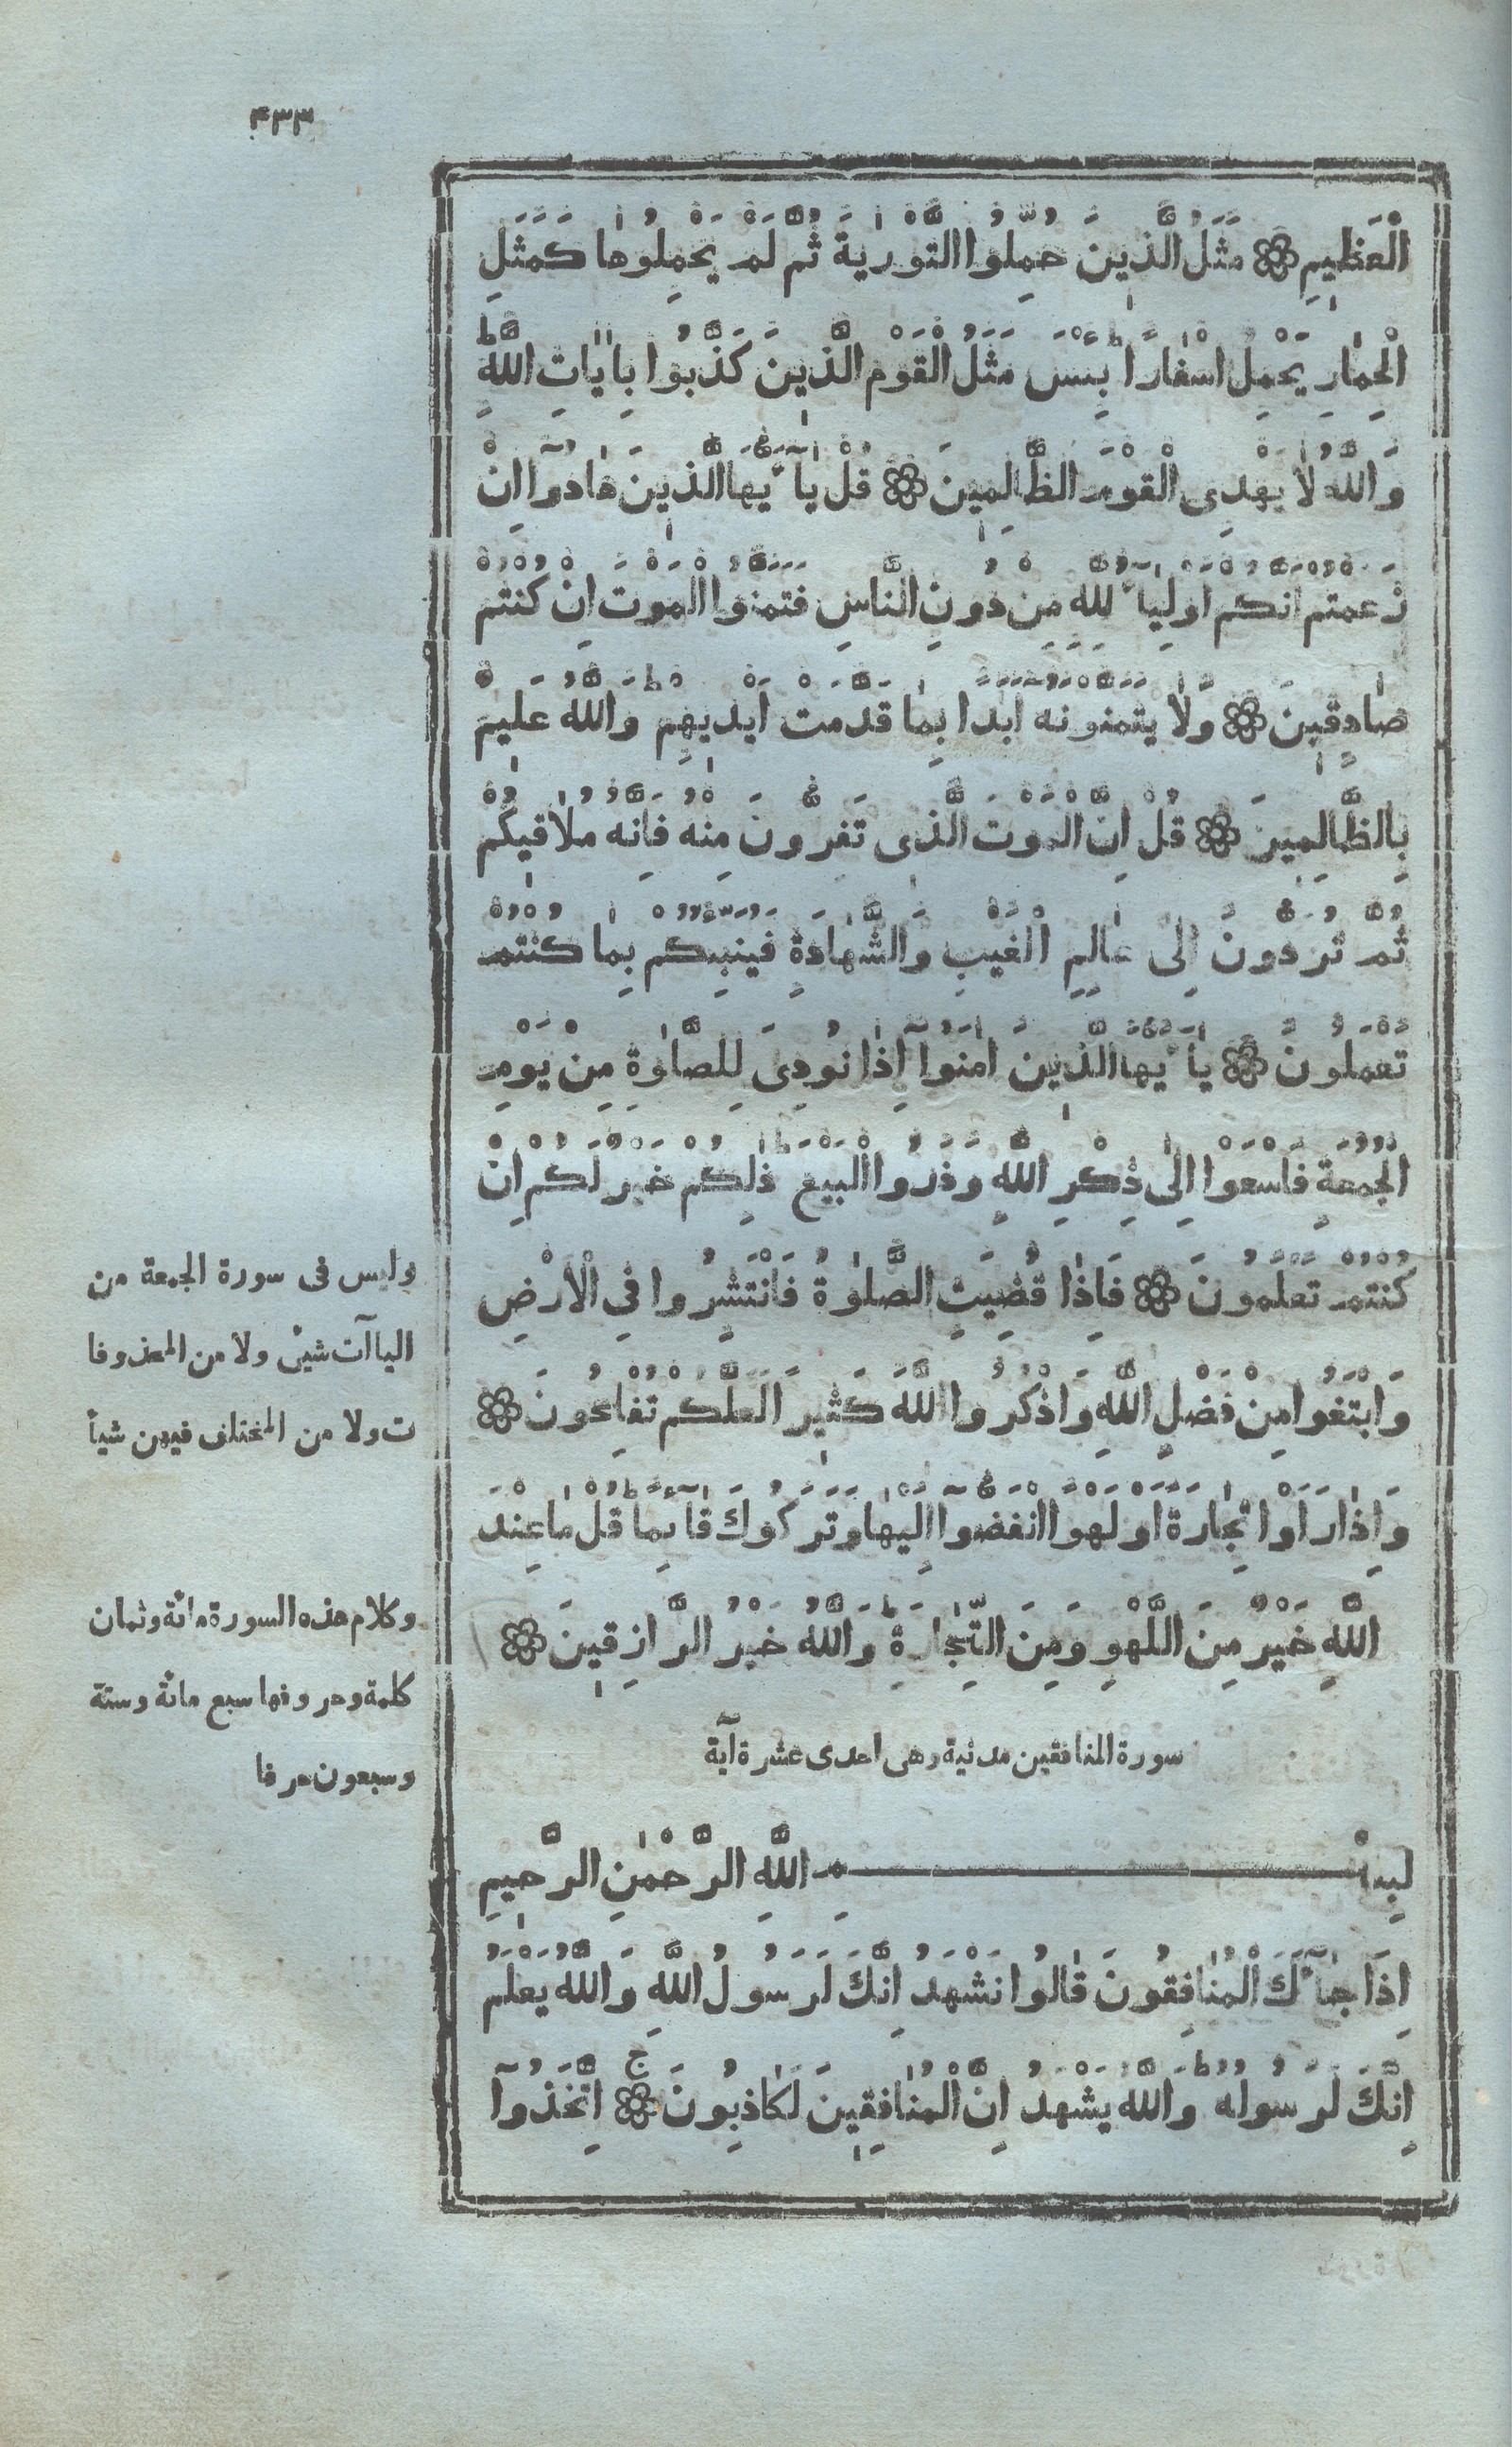 ٤٣٣
الْعَظِيمِ ۞ مَثَلُ الَّذِينَ حُمِّلُوا التَّوْرٰيةَ ثُمَّ لَمْ يَحْمِلُوهٰا كَمَثَلِ
الْحِمٰارِ يَحْمِلُ اَسْفٰاراً ط بِئْسَ مَثَلُ الْقَوْمِ الَّذِينَ كَذَّبُوا بِاٰيٰاتِ اللَّهِ ط
وَاللَّهُ لاٰ يَهْدِى الْقَوْمَ الظَّالِمِينَ ۞ قُلْ يٰآ ءَيُّهَا الَّذِينَ هٰادُوآ اِنْ
زَعَمْتُمْ اَنَّكُمْ اَوْلِيٰآءُ لِلَّهِ مِنْ دُونِ النَّاسِ فَتَمَنَّوُا الْمَوْتَ اِنْ كُنْتُمْ
صٰادِقِينَ ۞ وَلاٰ يَتَمَنَّوْنَهُ اَبَداً بِمٰا قَدَّمَتْ اَيْدِيهِمْ ط وَاللَّهُ عَلِيمٌ
بِالظَّالِمِينَ ۞ قُلْ اِنَّ الْمَوْتَ الَّذِى تَفِرُّونَ مِنْهُ فَاِنَّهُ مُلاٰقِيكُمْ
ثُمَّ تُرَدُّونَ اِلٰى عٰالِمِ الْغَيْبِ وَالشَّهٰادَةِ فَيُنَبِّئُكُمْ بِمٰا كُنْتُمْ
تَعْمَلُونَ ۞ يٰآ ءَيُّهَا الَّذِينَ اٰمَنُوآ اِذٰا نُودِىَ لِلصَّلٰوةِ مِنْ يَوْمِ
الْجُمُعَةِ فَاسْعَوْا اِلٰى ذِكْرِ اللَّهِ وَذَرُوا الْبَيْعَ ط ذٰلِكُمْ خَيْرٌ لَكُمْ اِنْ
كُنْتُمْ تَعْلَمُونَ ۞ فَاِذٰا قُضِيَتِ الصَّلٰوةُ فَانْتَشِرُوا فِى الْاَرْضِ
وَابْتَغُوا مِنْ فَضْلِ اللَّهِ وَاذْكُرُوا اللَّهَ كَثِيراً لَعَلَّكُمْ تُفْلِحُونَ ۞
وَاِذٰا رَاَوْا تِجٰارَةً اَوْ لَهْواً انْفَضُّوآ اِلَيْهٰا وَتَرَكُوكَ قٰآئِماً ط قُلْ مٰا عِنْدَ
اللَّهِ خَيْرٌ مِنَ اللَّهْوِ وَمِنَ التِّجٰارَةِ ط وَاللَّهُ خَيْرُ الرَّازِقِينَ ۞
سورة المنافقين مدنية وهى احدى عشرة آية
بِسْمِ اللَّهِ الرَّحْمٰنِ الرَّحِيمِ
اِذَا جٰآءَكَ الْمُنٰافِقُونَ قٰالُوا نَشْهَدُ اِنَّكَ لَرَسُولُ اللَّهِ وَاللَّهُ يَعْلَمُ
اِنَّكَ لَرَسُولُهُ ط وَاللَّهُ يَشْهَدُ اِنَّ الْمُنٰافِقِينَ لَكٰاذِبُونَ ج ۞ اِتَّخَذُوآ
وليس فى سورة الجمعة من
الياآت شيئ ولا من المحذوفا
ت ولا من المختلف فيهن شيأ
وكلام هذه السورة مائة وثمان
كلمة وحروفها سبع مائة وستة
وسبعون حرفا